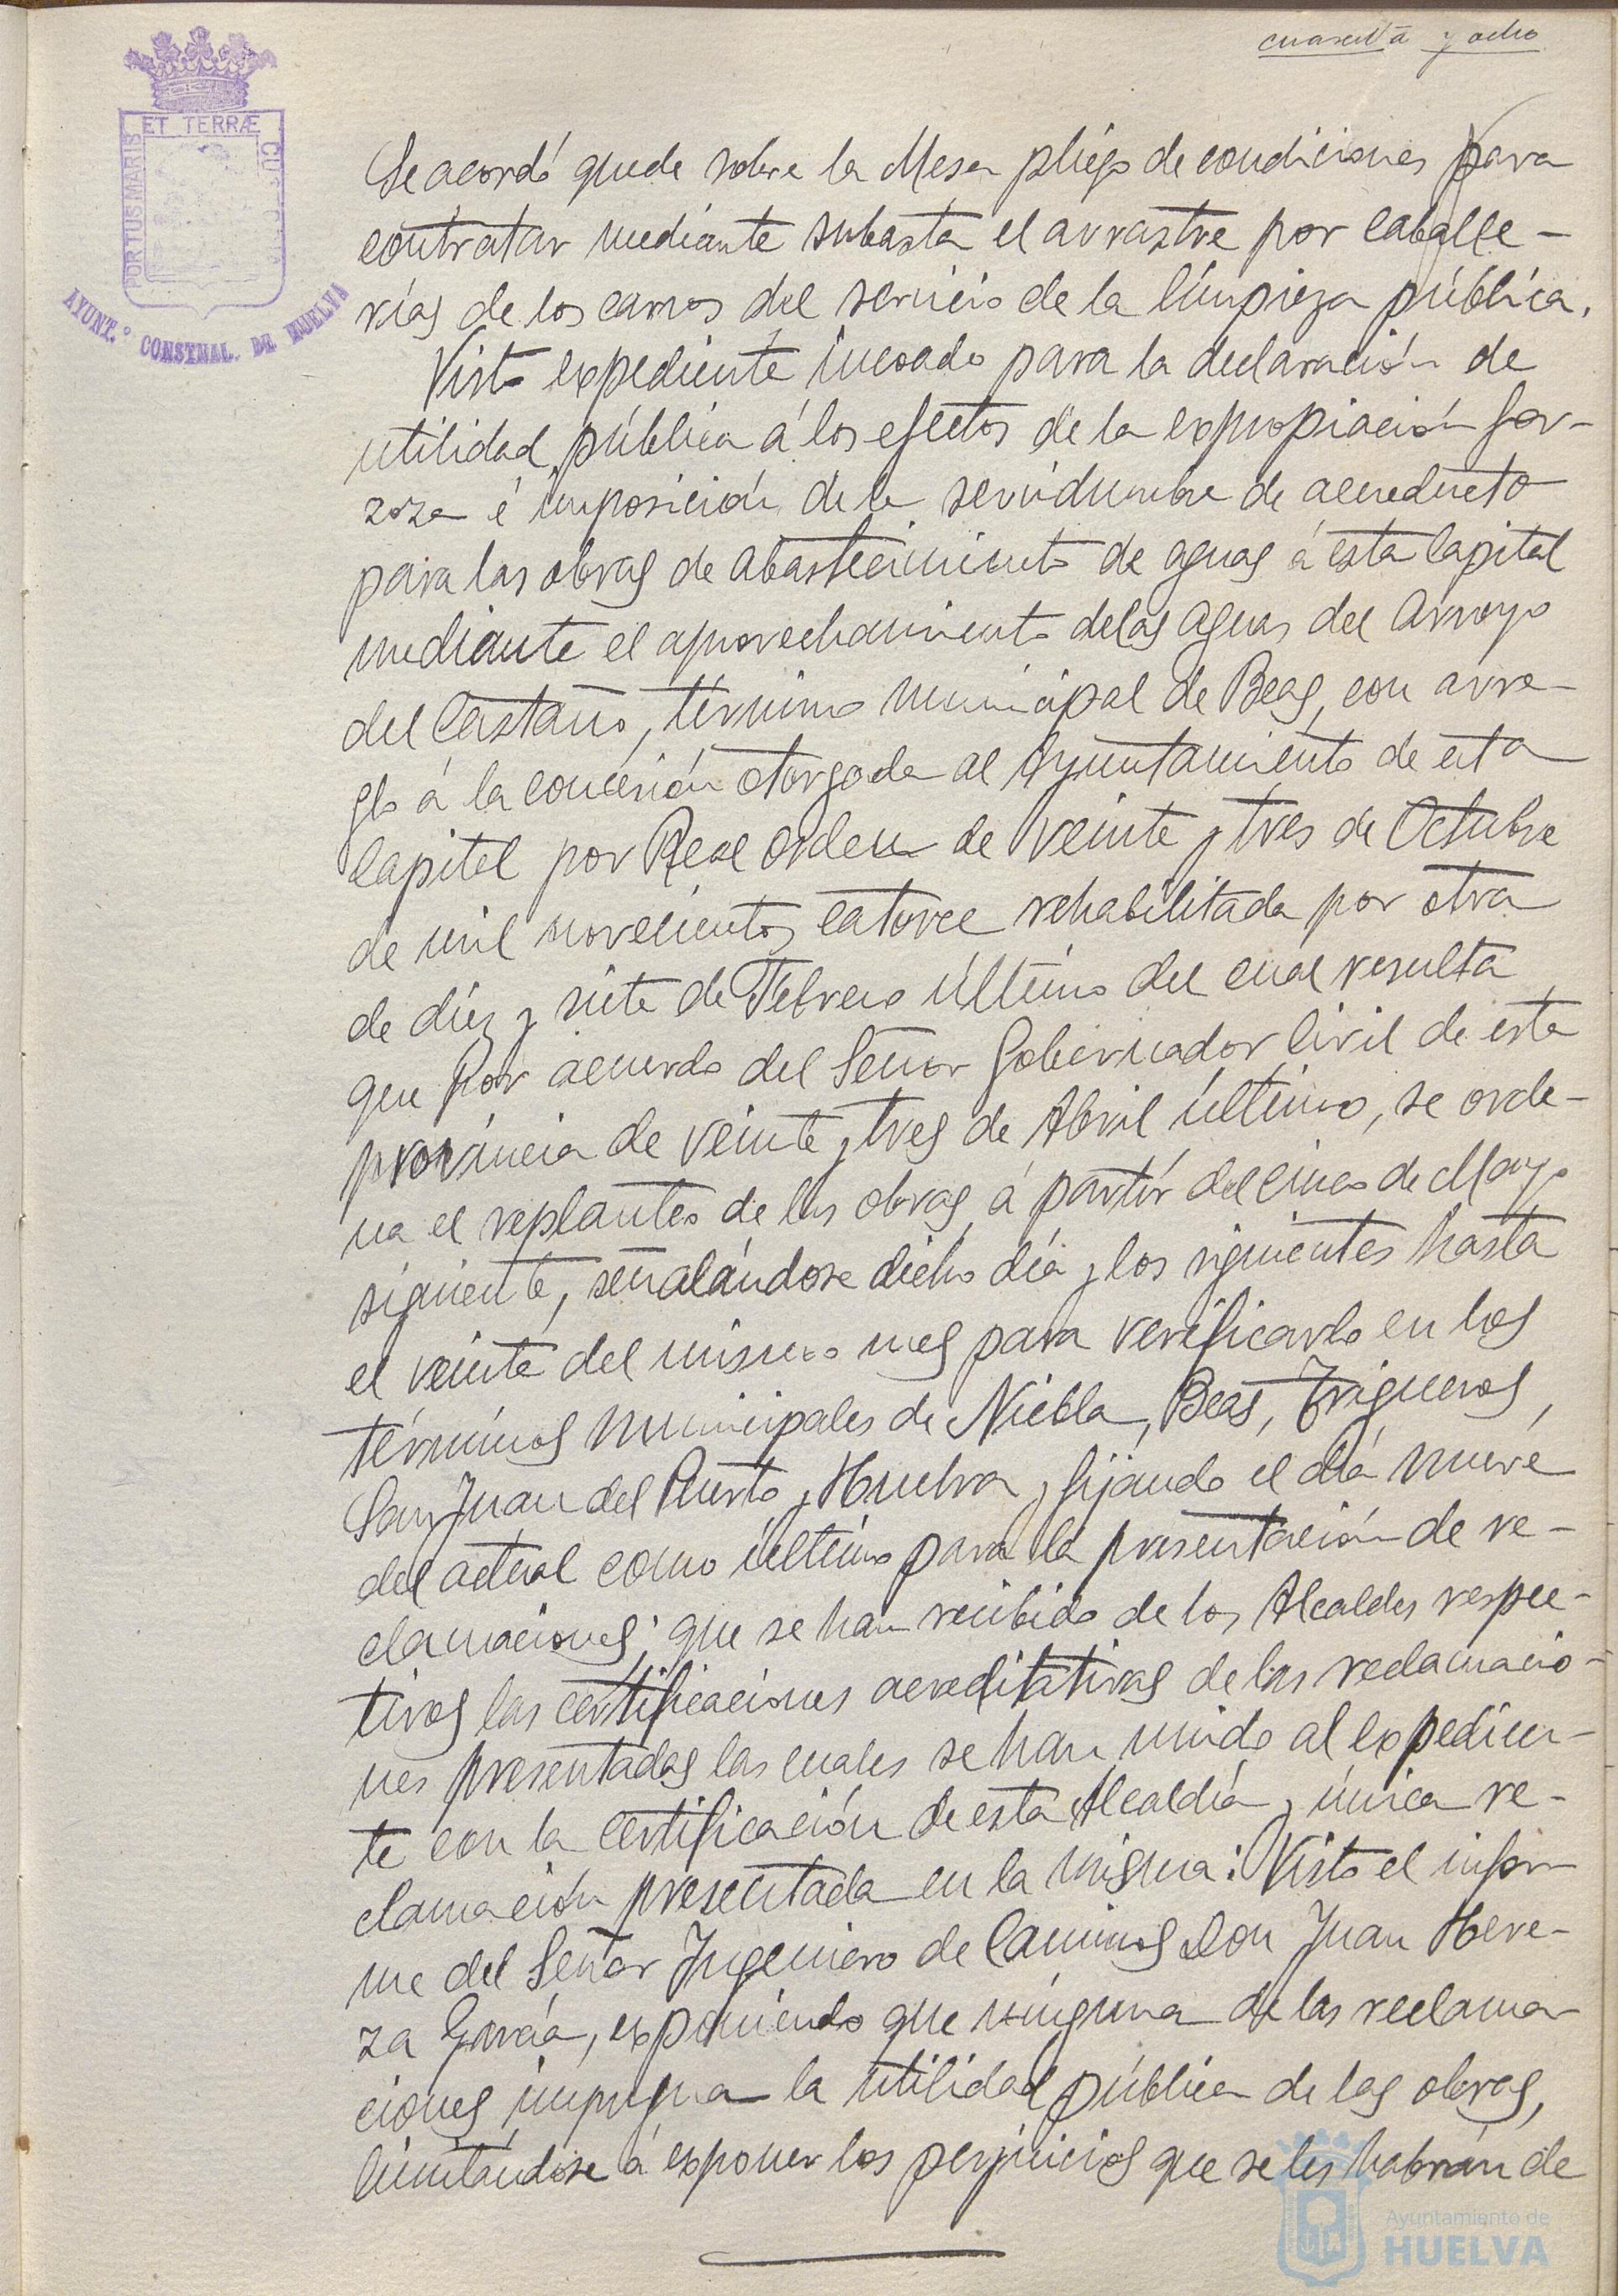 cuarenta y ocho
ET TERRÆ
PORTUS MARIS
CU
AYUNT.º CONSTNAL. DE HUELVA
Se acordó quede sobre la Mesa pliego de condiciones para
contratar mediante subasta el arrastre por caballe-
rías de los carros del servicio de la limpieza pública.
Visto expediente incoado para la declaración de
utilidad pública á los efectos de la expropiación for-
zoza é imposición de la servidumbre de acueducto
para las obras de abastecimiento de aguas á esta Capital
mediante el aprovechamiento de las aguas del Arroyo
del Castaño, término municipal de Beas, con arre-
glo á la concesión otorgada al Ayuntamiento de esta
Capital por Real Orden de veinte y tres de Octubre
de mil novecientos catorce rehabilitada por otra
de diez y siete de Febrero último del cual resulta
que por acuerdo del Señor Gobernador Civil de esta
provincia de veinte y tres de Abril último, se orde-
na el replanteo de las obras á partir del cinco de Mayo
siguiente, señalándose dicho día y los siguientes hasta
el veinte del mismo mes para verificarlo en los
términos municipales de Niebla, Beas, Trigueros,
San Juan del Puerto y Huelva y fijando el día nueve
del actual como último para la presentación de re-
clamaciones; que se han recibido de los Alcaldes respec-
tivos las certificaciones acreditativas de las reclamacio-
nes presentadas las cuales se han unido al expedien-
te con la certificación de esta Alcaldía y única re-
clamación presentada en la misma: Visto el infor-
me del Señor Ingeniero de Caminos Don Juan Here-
za García, exponiendo que ninguna de las reclama-
ciones impugna la utilidad pública de las obras,
limitándose á exponer los perjuicios que se les habrán de
Ayuntamiento de
HUELVA